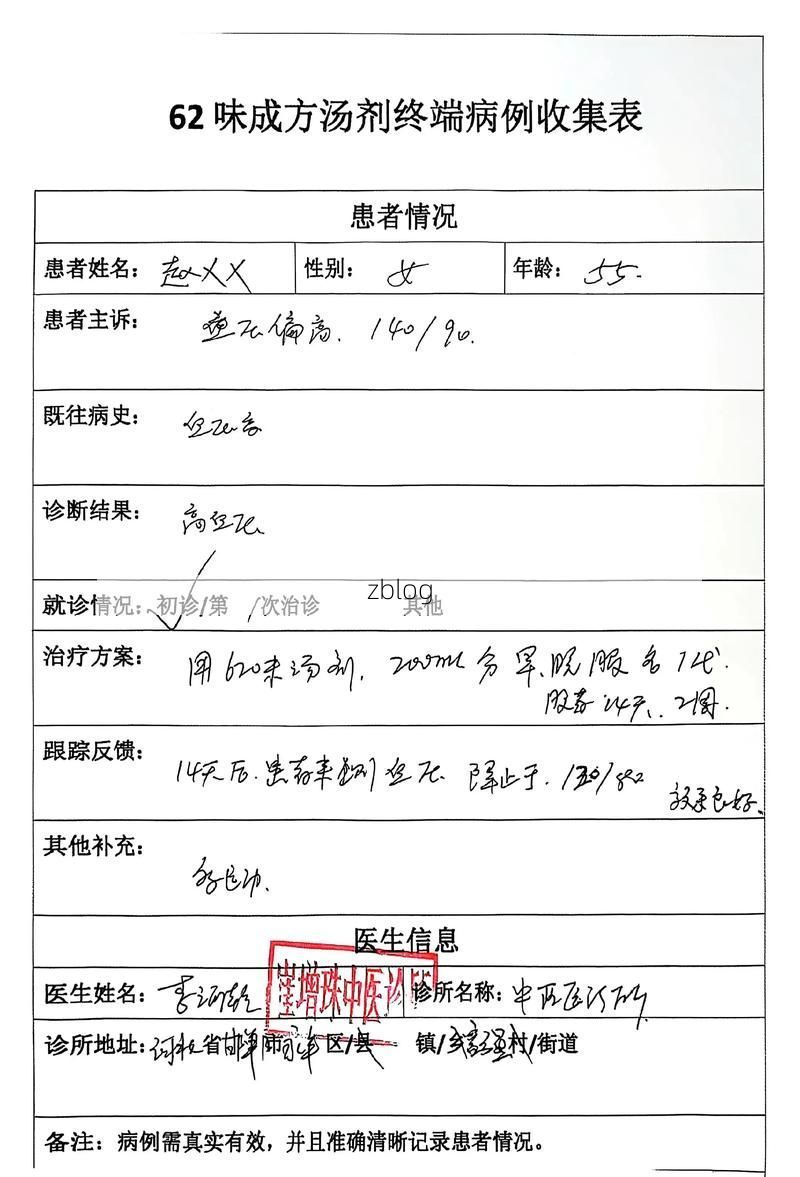 62味成方汤剂终端病例收集表
患者情况
患者姓名：赵XX 性别：女 年龄：55.
患者主诉：血压偏高. 140/90.
既往病史：血压高
诊断结果：高血压
就诊情况：初诊/第 /次治诊 其他
zblog
治疗方案：用620味汤剂, 200ml 分早、晚服各1代.
服药14天、2周.
跟踪反馈：14天后.患者来测血压 降止于.
效果良好、
其他补充：多运动.
医生信息
崔增珠中医诊所
医生姓名：李 诊所名称：中医诊所
诊所地址：河北省邯郸市 区/县 镇/乡 村/街道
备注：病例需真实有效，并且准确清晰记录患者情况。